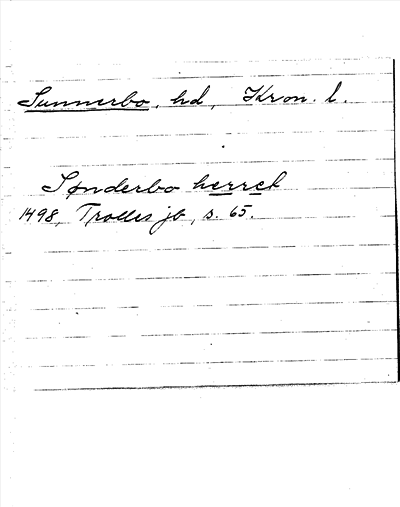 Sunnerbo, hd, Kron. l.
Sønderbo herret
1498, Trolles jb, s. 65.